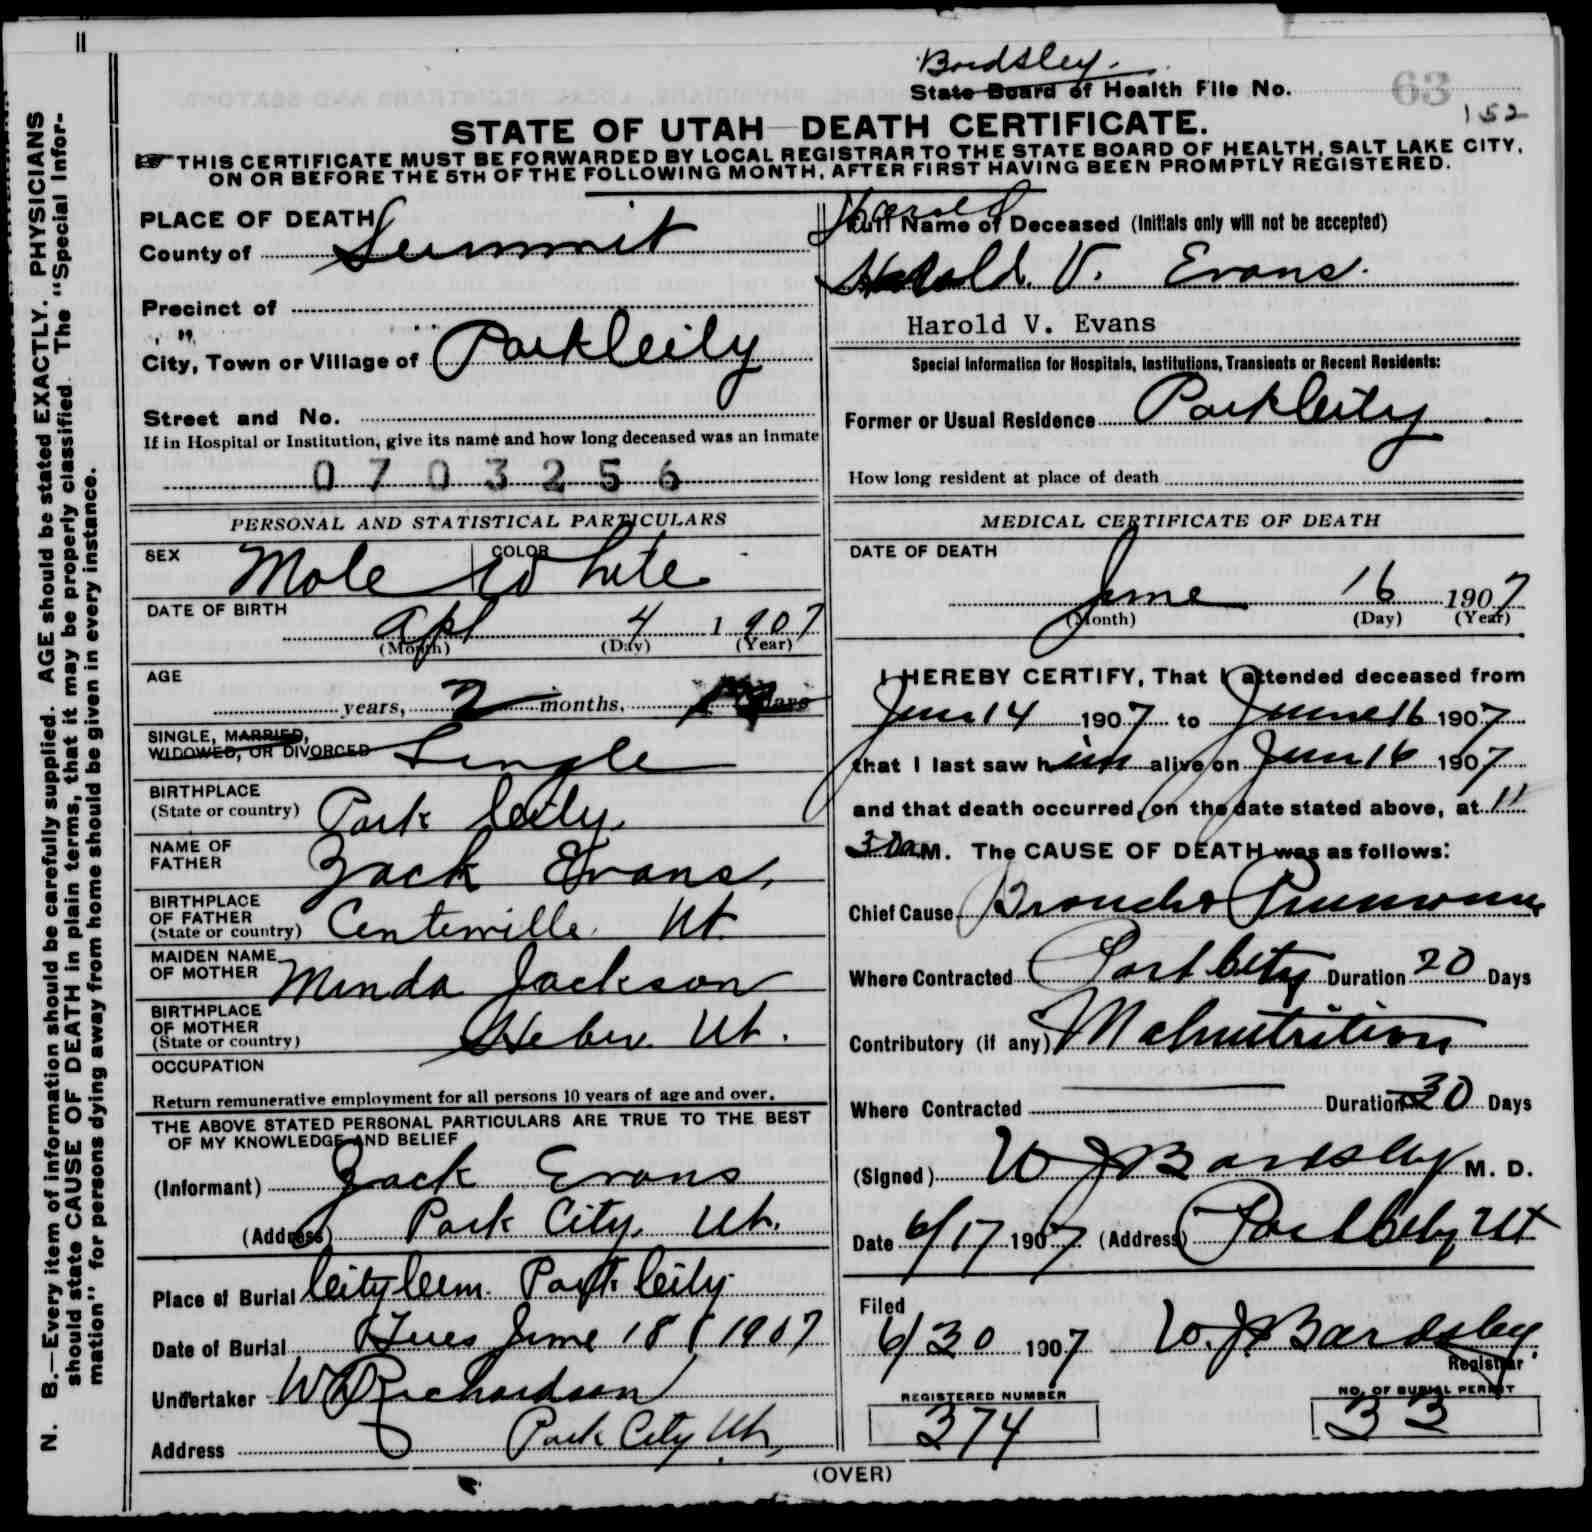 Bardsley.
State Board of Health File No. 63
152
STATE OF UTAH—DEATH CERTIFICATE.
THIS CERTIFICATE MUST BE FORWARDED BY LOCAL REGISTRAR TO THE STATE BOARD OF HEALTH, SALT LAKE CITY,
ON OR BEFORE THE 5TH OF THE FOLLOWING MONTH, AFTER FIRST HAVING BEEN PROMPTLY REGISTERED.
N. B.—Every item of information should be carefully supplied. AGE should be stated EXACTLY. PHYSICIANS
should state CAUSE OF DEATH in plain terms, that it may be properly classified. The "Special Infor-
mation" for persons dying away from home should be given in every instance.
PLACE OF DEATH
County of Summit
Precinct of
City, Town or Village of Park City
Street and No.
If in Hospital or Institution, give its name and how long deceased was an inmate
0703256
PERSONAL AND STATISTICAL PARTICULARS
SEX Male COLOR White
DATE OF BIRTH
Apl 4 1907
(Month) (Day) (Year)
AGE
years, 2 months, days
SINGLE, MARRIED,
WIDOWED, OR DIVORCED Single
BIRTHPLACE
(State or country) Park City
NAME OF
FATHER Zack Evans,
BIRTHPLACE
OF FATHER
(State or country) Centerville Ut.
MAIDEN NAME
OF MOTHER Minda Jackson
BIRTHPLACE
OF MOTHER
(State or country) Heber Ut.
OCCUPATION
Return remunerative employment for all persons 10 years of age and over.
THE ABOVE STATED PERSONAL PARTICULARS ARE TRUE TO THE BEST
OF MY KNOWLEDGE AND BELIEF
(Informant) Zack Evans
(Address) Park City, Ut.
Place of Burial City Cem. Park City
Date of Burial Tues June 18 1907
Undertaker W D Richardson
Address Park City Ut,
Harold
Full Name of Deceased (Initials only will not be accepted)
Harold. V. Evans.
Harold V. Evans
Special Information for Hospitals, Institutions, Transients or Recent Residents:
Former or Usual Residence Park City
How long resident at place of death
MEDICAL CERTIFICATE OF DEATH
DATE OF DEATH
June 16 1907
(Month) (Day) (Year)
I HEREBY CERTIFY, That I attended deceased from
June 14 1907 to June 16 1907
that I last saw him alive on June 16 1907
and that death occurred, on the date stated above, at 11
30 a M. The CAUSE OF DEATH was as follows:
Chief Cause Broncho Pneumonia
Where Contracted Park City Duration 20 Days
Contributory (if any) Malnutrition
Where Contracted Duration 30 Days
(Signed) W J Bardsley M. D.
Date 6/17 1907 (Address) Park City Ut
Filed
6/30 1907 W. J. Bardsley.
Registrar
REGISTERED NUMBER
374
NO. OF BURIAL PERMIT
33
(OVER)